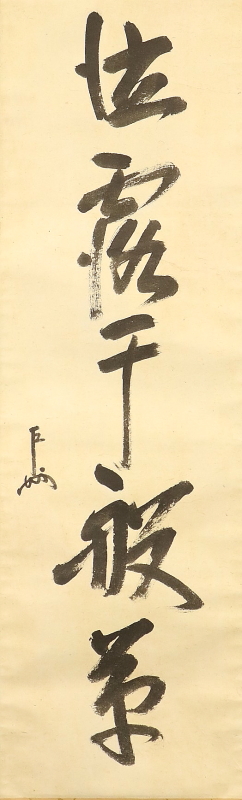 泣露千般草